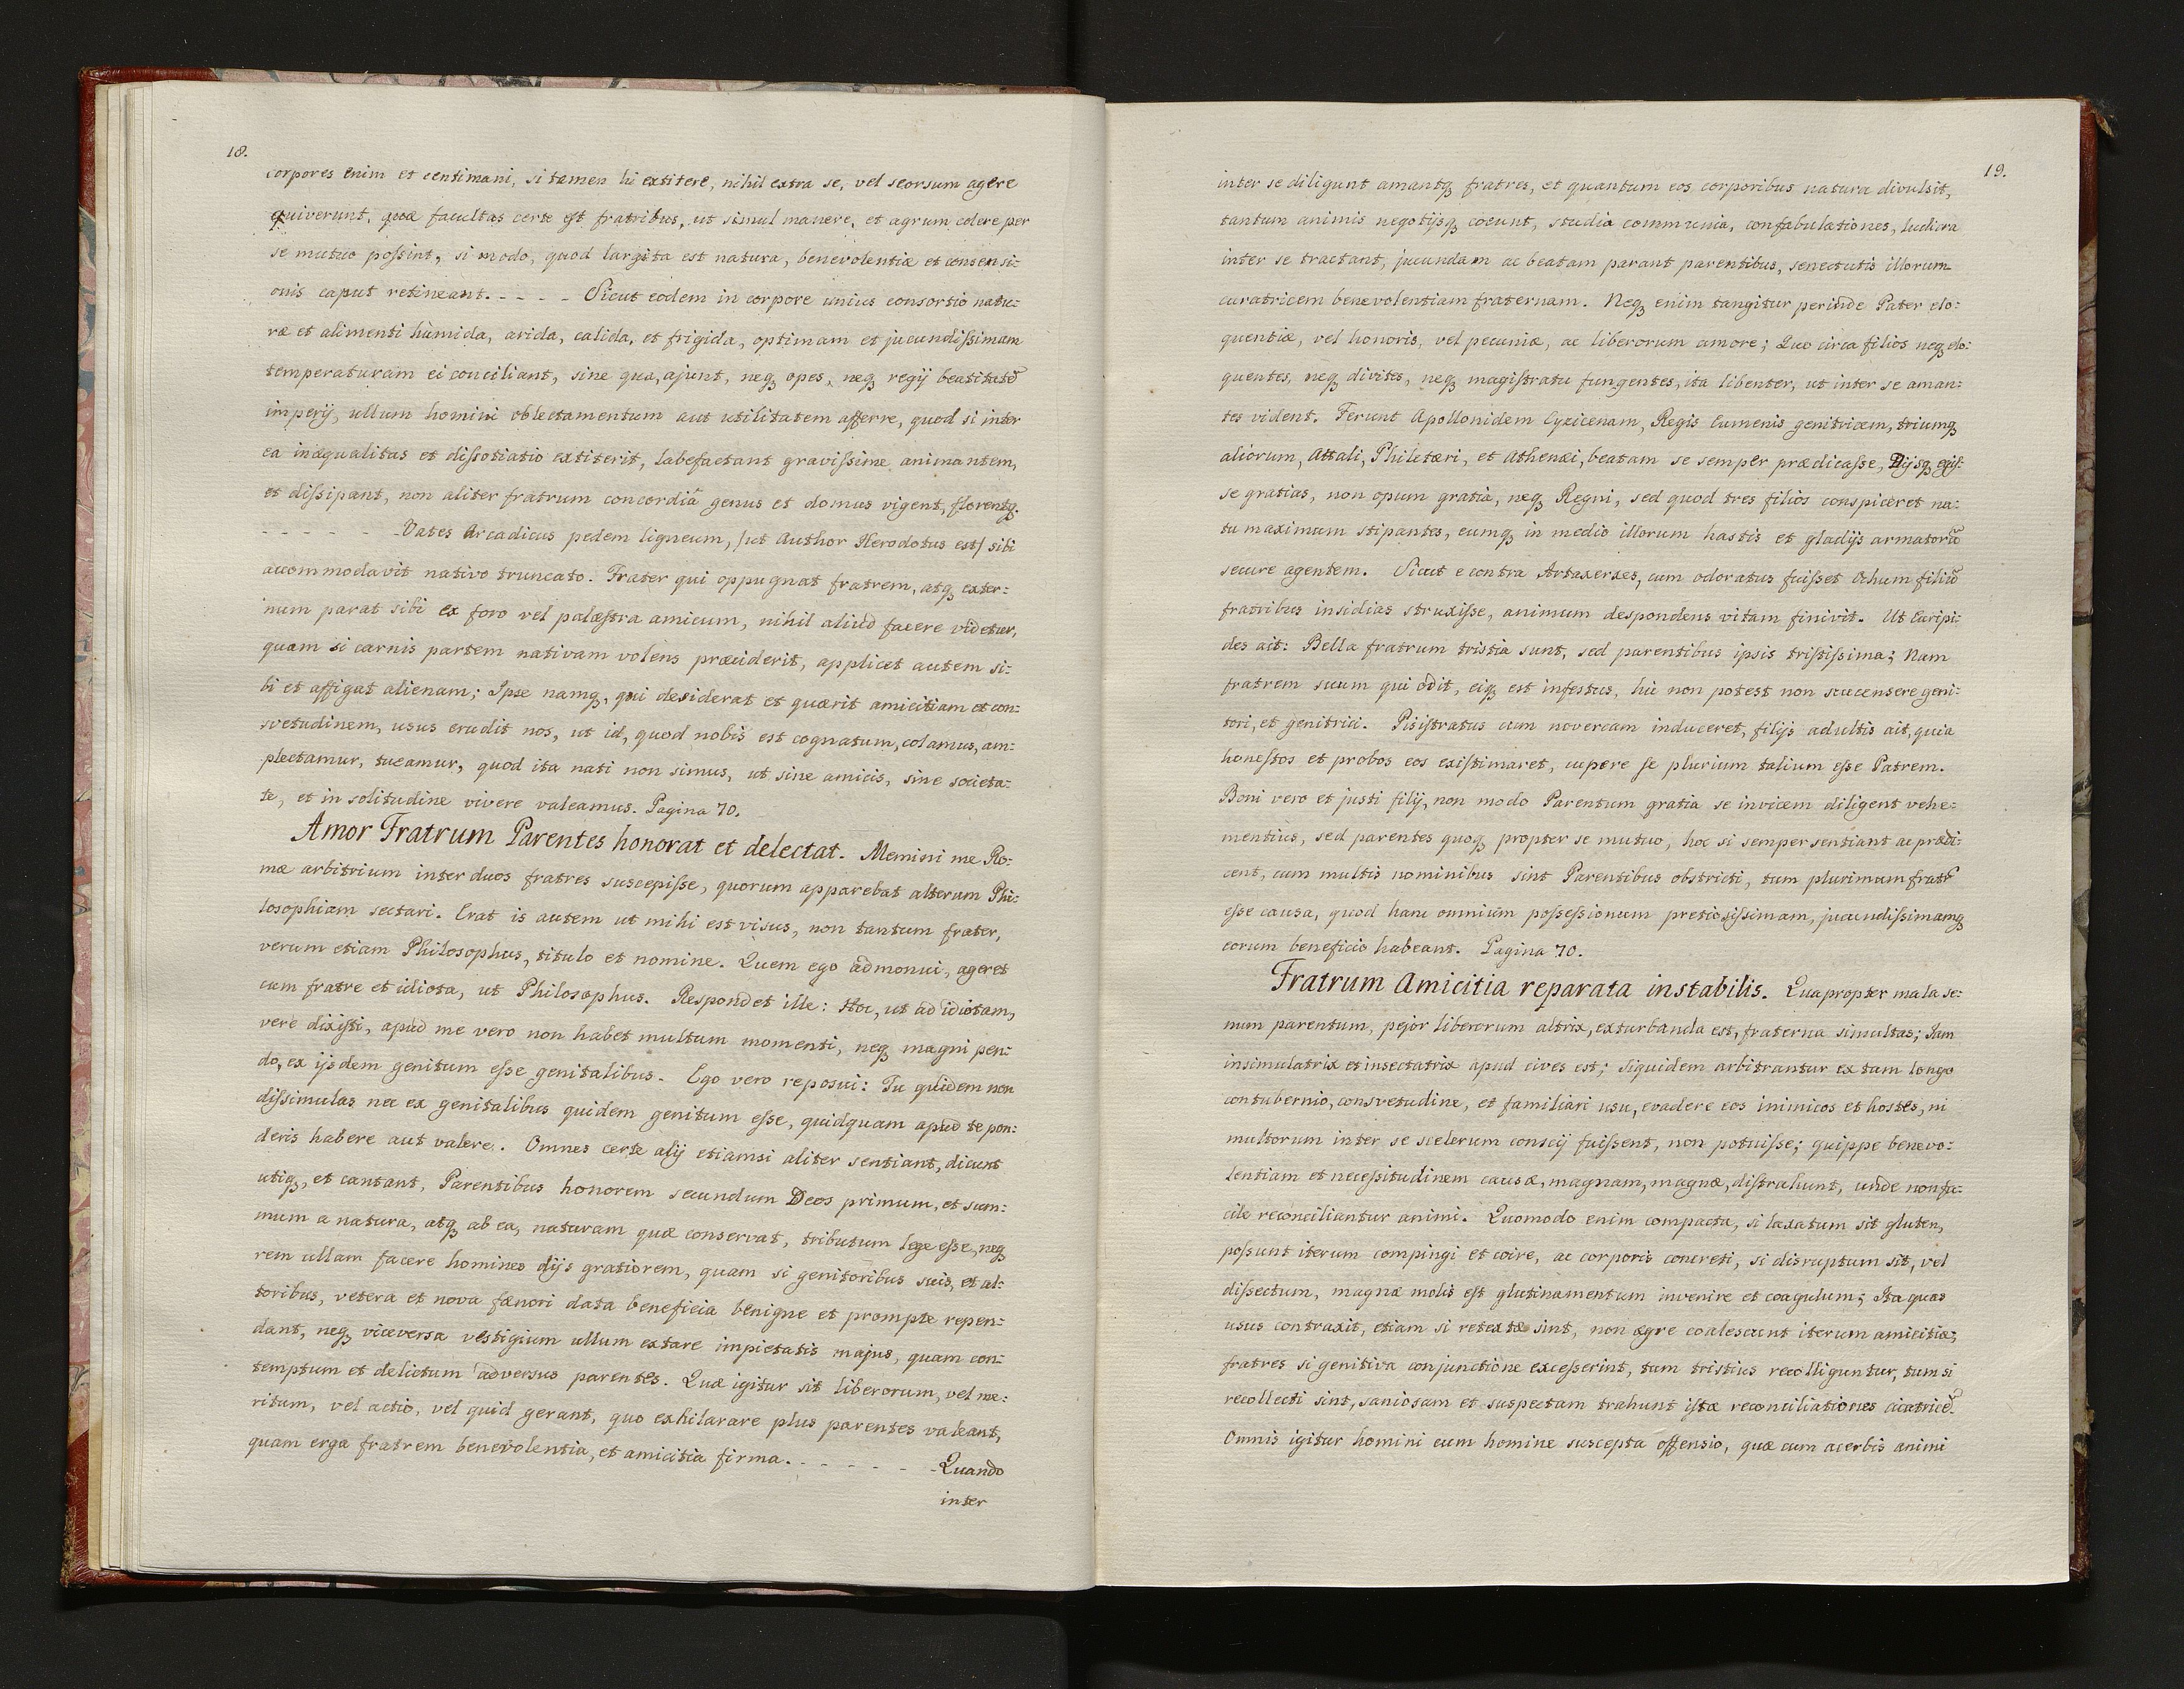 18.
corpores enim et centimani, si tamen hi extitere, nihil extra se, vel seorsum agere
quiverunt, quæ facultas certe est fratribus, ut simul manere, et agrum colere per
se mutuo possint, si modo, quod largita est natura, benevolentiæ et consensi:
onis caput retineant. - - - - Sicut eodem in corpore unius consortio natu:
ræ et alimenti humida, arida, calida, et frigida, optimam et jucundissimam
temperaturam ei conciliant, sine qua, ajunt, neq, opes, neq, regij beatitatē
imperij, ullum homini oblectamentum aut utilitatem afferre, quod si inter
ea inæqualitas et dissotiatio extiterit, labefactant gravissime animantem,
et dissipant, non aliter fratrum concordiâ genus et domus vigent, florentq.
- - - - - - Vates Arcadicus pedem ligneum, /ut Author Herodotus est/ sibi
accommodavit nativo truncato. Frater qui oppugnat fratrem, atq, exter:
num parat sibi ex foro vel palæstra amicum, nihil aliud facere videtur,
quam si carnis partem nativam volens præciderit, applicet autem si:
bi et affigat alienam; Ipse namq, qui desiderat et quærit amicitiam et con:
svetudinem, usus erudit nos, ut id, quod nobis est cognatum, colamus, am:
plectamur, tueamur, quod ita nati non simus, ut sine amicis, sine societa:
te, et in solitudine vivere valeamus. Pagina 70.
Amor Fratrum Parentes honorat et delectat. Memini me Ro:
mæ arbitrium inter duos fratres suscepisse, quorum apparebat alterum Phi:
losophiam sectari. Erat is autem ut mihi est visus, non tantum frater,
verum etiam Philosophus, titulo et nomine. Quem ego admonui, ageret
cum fratre et idiota, ut Philosophus. Respondet ille: Hoc, ut ad idiotam,
vere dixisti, apud me vero non habet multum momenti, neq, magni pen:
do, ex ijsdem genitum esse genitalibus. Ego vero reposui: Tu quidem non
dissimulas nec ex genitalibus quidem genitum esse, quidquam apud te pon:
deris habere aut valere. Omnes certe alij etiamsi aliter sentiant, dicunt
utiq, et cantant, Parentibus honorem secundum Deos primum, et sum:
mum a natura, atq, ab ea, naturam quæ conservat, tributum lege esse, neq,
rem ullam facere homines dijs gratiorem, quam si genitoribus suis, et al:
toribus, vetera et nova fænori data beneficia benigne et prompte repen:
dant, neq, viceversa vestigium ullum extare impietatis majus, quam con:
temptum et delictum adversus parentes. Quæ igitur sit liberorum, vel me:
ritum, vel actio, vel quid gerant, quo exhilarare plus parentes valeant,
quam erga fratrem benevolentia, et amicitia firma. - - - - - - Quando
inter
19.
inter se diligunt amantq, fratres, et quantum eos corporibus natura divulsit,
tantum animis negotijsq, coeunt, studia communia, confabulationes, ludicra
inter se tractant, jucundam ac beatam parant parentibus, senectutis illorum
curatricem benevolentiam fraternam. Neq, enim tangitur perinde Pater elo:
quentiæ, vel honoris, vel pecuniæ, ac liberorum amore; Quo circa filios neq, elo:
quentes, neq, divites, neq, magistratu fungentes, ita libenter, ut inter se aman:
tes vident. Ferunt Apollonidem Cyzicenam, Regis Eumenis genitricem, triumq,
aliorum, Attali, Philetæri, et Athenæi, beatam se semper prædicasse, Dijsq, egis:
se gratias, non opum gratia, neq, Regni, sed quod tres filios conspiceret na:
tu maximum stipantes, eumq, in medio illorum hastis et gladijs armatorū
secure agentem. Sicut e contra Artaxerxes, cum odoratus fuisset Ochum filiū
fratribus insidias struxisse, animum despondens vitam finivit. Ut Euripi:
des ait: Bella fratrum tristia sunt, sed parentibus ipsis tristissima; Nam
fratrem suum qui odit, eiq, est infestus, hic non potest non succensere geni:
tori, et genitrici. Pisistratus cum novercam induceret, filijs adultis ait, quia
honestos et probos eos existimaret, cupere se plurium talium esse Patrem.
Boni vero et justi filij, non modo Parentum gratia se invicem diligent vehe:
mentius, sed parentes quoq, propter se mutuo, hoc si semper sentiant ac prædi:
cent, cum multis nominibus sint Parentibus obstricti, tum plurimum fratrū
esse causa, quod hanc omnium possessionum pretiosissimam, jucundissimamq,
eorum beneficio habeant. Pagina 70.
Fratrum Amicitia reparata instabilis. Quapropter mala se:
num parentum, pejor liberorum altrix, exturbanda est, fraterna simultas; Nam
insimulatrix et insectatrix apud cives est; siquidem arbitrantur ex tam longo
contubernio, consvetudine, et familiari usu, evadere eos inimicos et hostes, ni
multorum inter se scelerum conscij fuissent, non potuisse; quippe benevo:
lentiam et necessitudinem causæ, magnam, magnæ, distrahunt, unde non fa:
cile reconciliantur animi. Quomodo enim compacta, si laxatum sit gluten,
possunt iterum compingi et coire, ac corporis concreti, si disruptum sit, vel
dissectum, magnæ molis est glutinamentum invenire et coagulum; Ita quas
usus contraxit, etiam si retextæ sint, non ægre coalescunt iterum amicitiæ;
fratres si genitiva conjunctione excesserint, tum tristius recolliguntur, tum si
recollecti sint, saniosam et suspectam trahunt istæ reconciliationes cicatricē.
Omnis igitur homini cum homine suscepta offensio, quæ cum acerbis animi